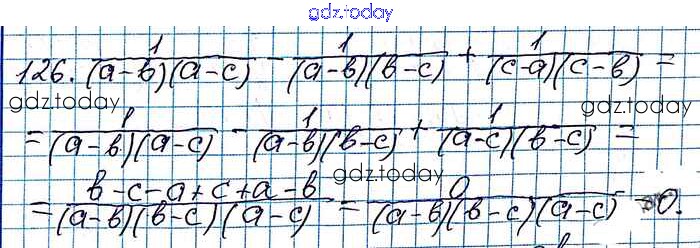 gdz.today
126. 1/((a-b)(a-c)) - 1/((a-b)(b-c)) + 1/((c-a)(c-b)) =
gdz.today gdz.today
= 1/((a-b)(a-c)) - 1/((a-b)(b-c)) + 1/((a-c)(b-c)) =
gdz.today
= (b-c-a+c+a-b)/((a-b)(b-c)(a-c)) = 0/((a-b)(b-c)(a-c)) = 0.